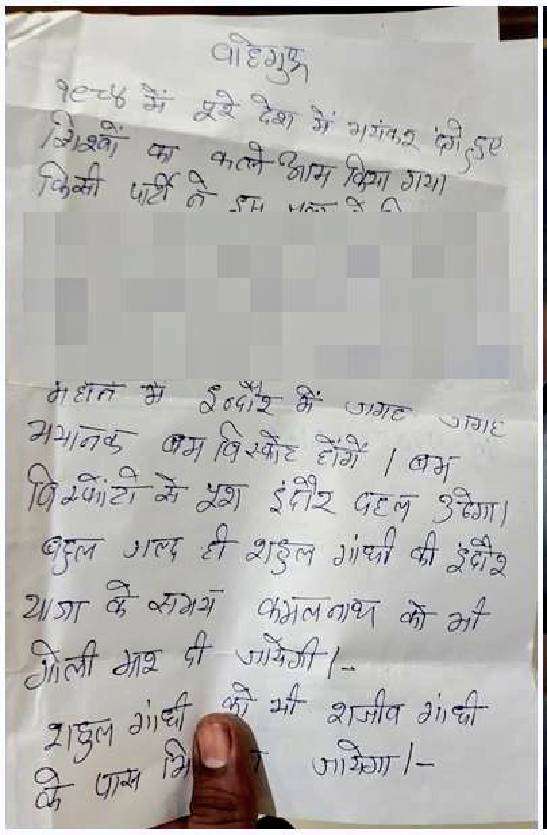 वाहेगुरू
१९८४ में पूरे देश में भयंकर दंगे हुए
सिखों का कत्ले आम किया गया
किसी पार्टी ने इस
इन्दौर में जगह जगह
भयानक बम विस्फोट होंगें। बम
विस्फोटो से पूरा इंदौर दहल उठेगा।
बहुत जल्द ही राहुल गांधी की इंदौर
यात्रा के समय कमलनाथ को भी
गोली मार दी जायेगी।-
राहुल गांधी को भी राजीव गांधी
के पास जायेगा।-